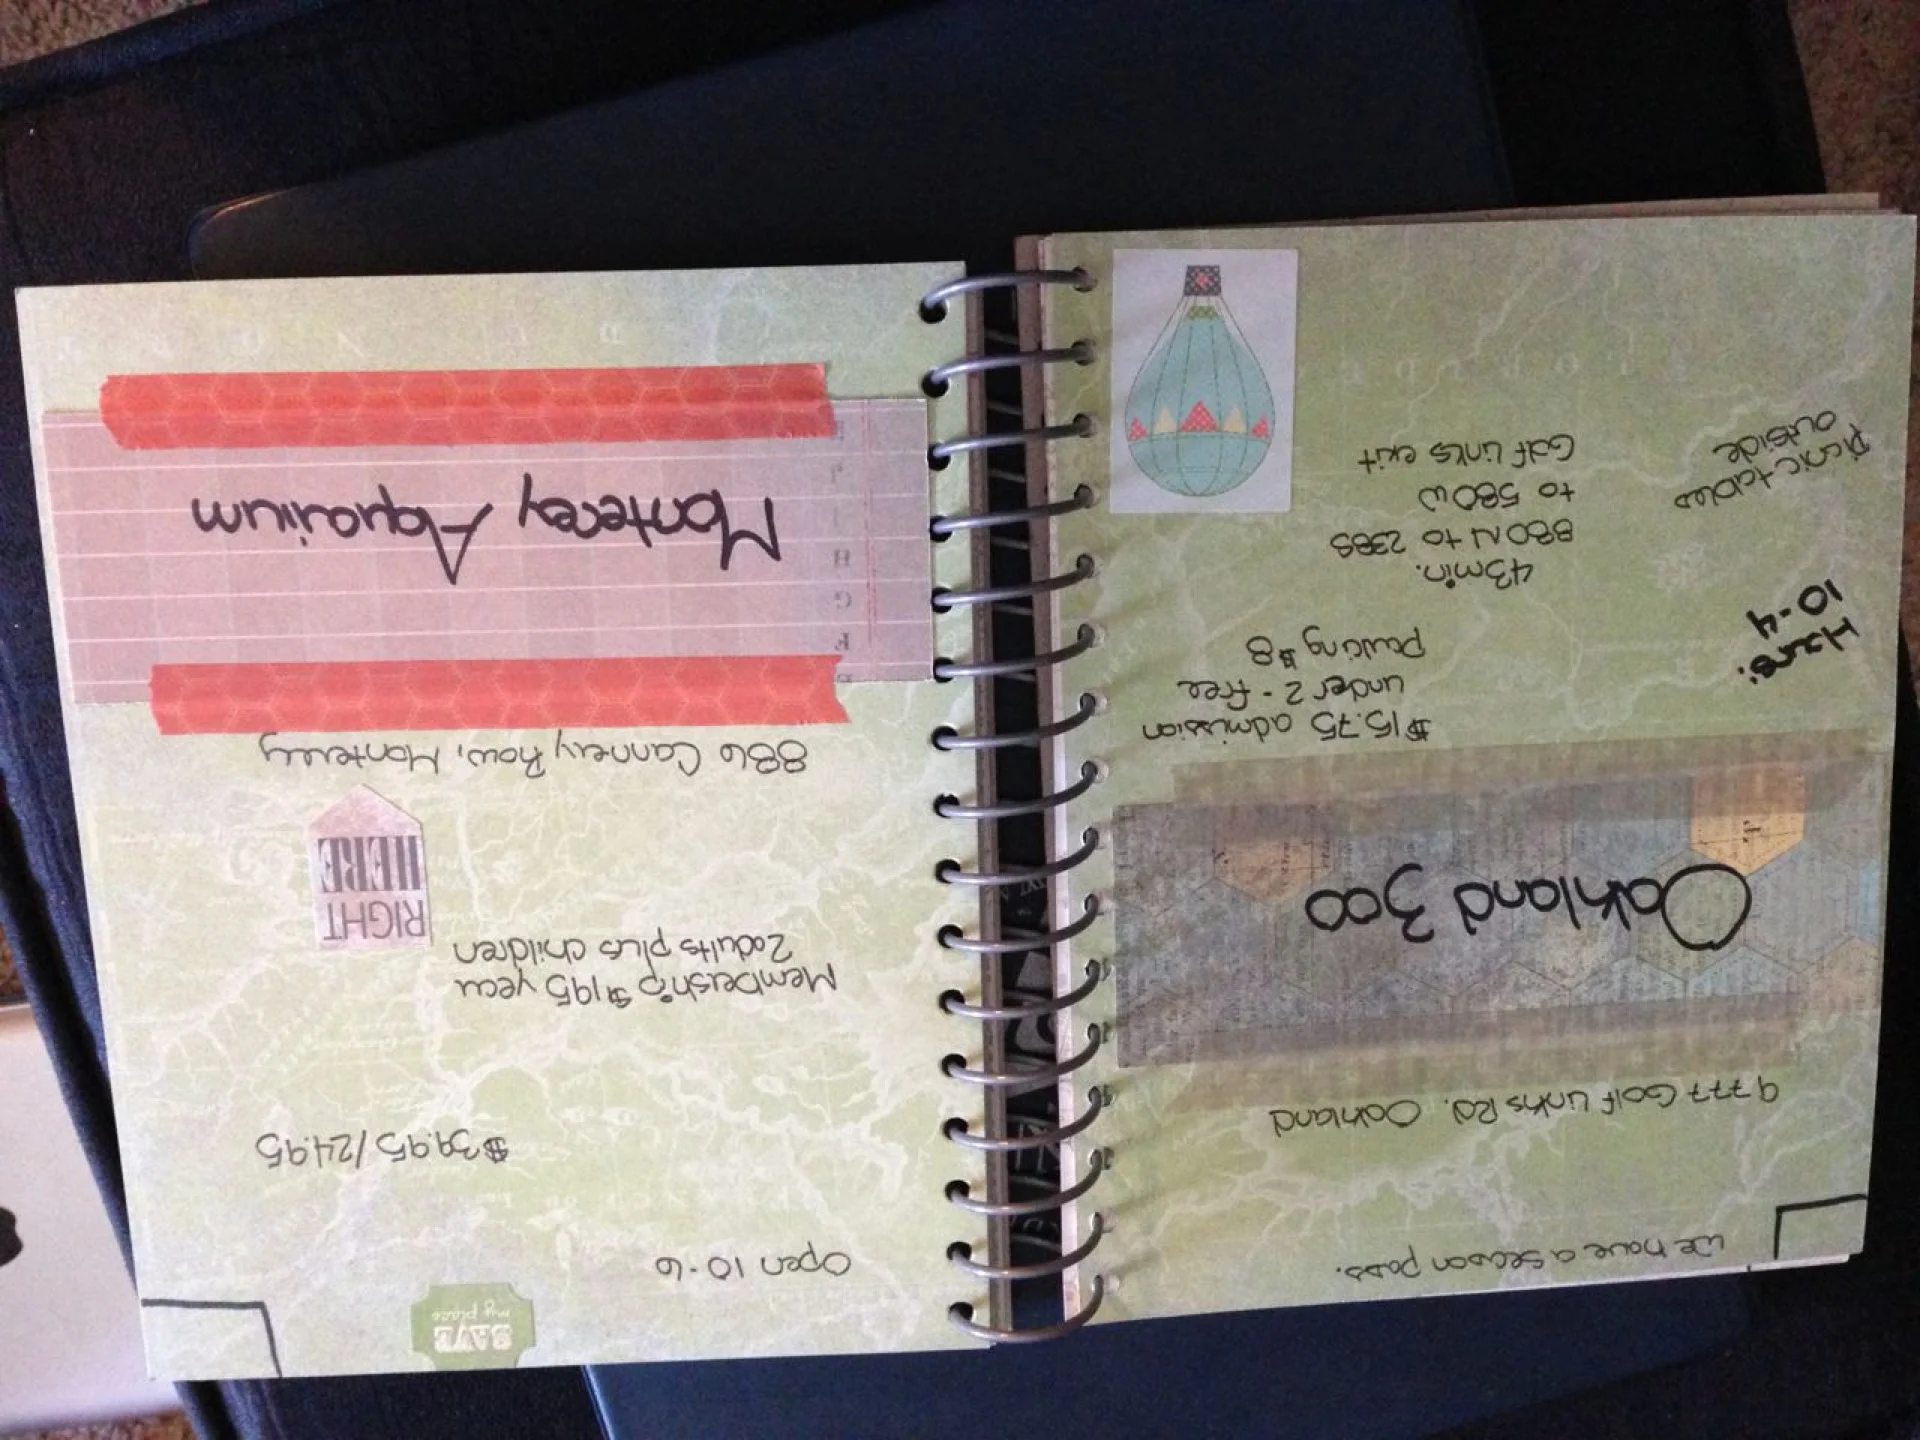 We have a season pass.
9777 Golf Links Rd. Oakland
Oakland Zoo
$15.75 admission
under 2 - free
parking $8
Hours:
10-4
43 min.
880N to 238S
to 580W
Golf Links exit
picnic tables
outside
SAVE
my place
Open 10-6
$39.95/24.95
Membership $195 year
2 adults plus children
RIGHT
HERE
886 Cannery Row, Monterey
F
G
H
Monterey Aquarium